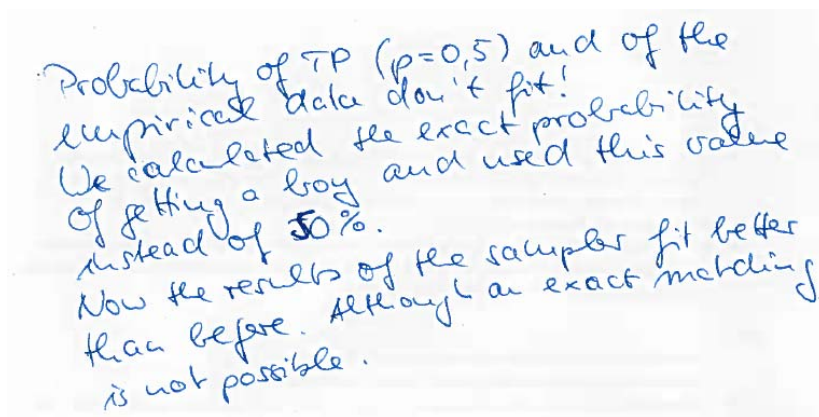 Probability of TP (p=0,5) and of the
empirical data don't fit!
We calculated the exact probability
of getting a boy and used this value
instead of 50%.
Now the results of the sampler fit better
than before. Although an exact matching
is not possible.